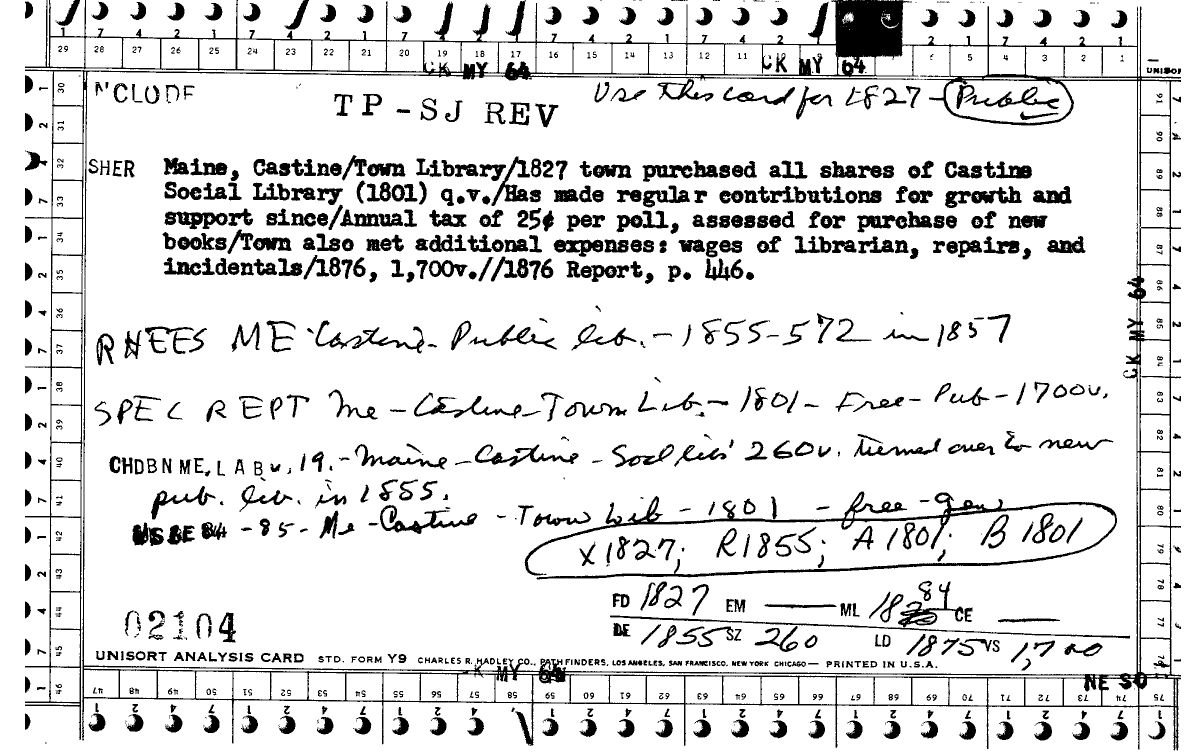 29 28 27 26 25 24 23 22 21 20 19 18 17 16 15 14 13 12 11 6 5 4 3 2 1
CK MY 64 CK MY 64
UNISOR
TP-SJ REV Use this card for 1827 - Public
SHER Maine, Castine/Town Library/1827 town purchased all shares of Castine
Social Library (1801) q.v./Has made regular contributions for growth and
support since/Annual tax of 25¢ per poll, assessed for purchase of new
books/Town also met additional expenses: wages of librarian, repairs, and
incidentals/1876, 1,700v.//1876 Report, p. 446.
CK MY 64
RHEES ME Castine - Public lib. - 1855-572 in 1857
SPEC REPT Me - Castine - Town Lib. - 1801 - Free - Pub - 1700v.
CHDBN ME, L A B v, 19. - Maine - Castine - Soc'l lib's 260v. turned over to new
pub. lib. in 1855.
US BE 84 - 85 - Me - Castine - Town Lib - 1801 - free - gen
X1827; R1855; A 1801; B 1801
FD 1827 EM — ML 84 CE —
02104
DE 1855 SZ 260 LD 1875 VS 1,700
UNISORT ANALYSIS CARD STD. FORM Y9 CHARLES R. HADLEY CO., PATHFINDERS, LOS ANGELES, SAN FRANCISCO, NEW YORK CHICAGO — PRINTED IN U.S.A.
CK MY 64
NE SO
47 48 49 50 51 52 53 54 55 56 57 58 59 60 61 62 63 64 65 66 67 68 69 70 71 72 73 74 75